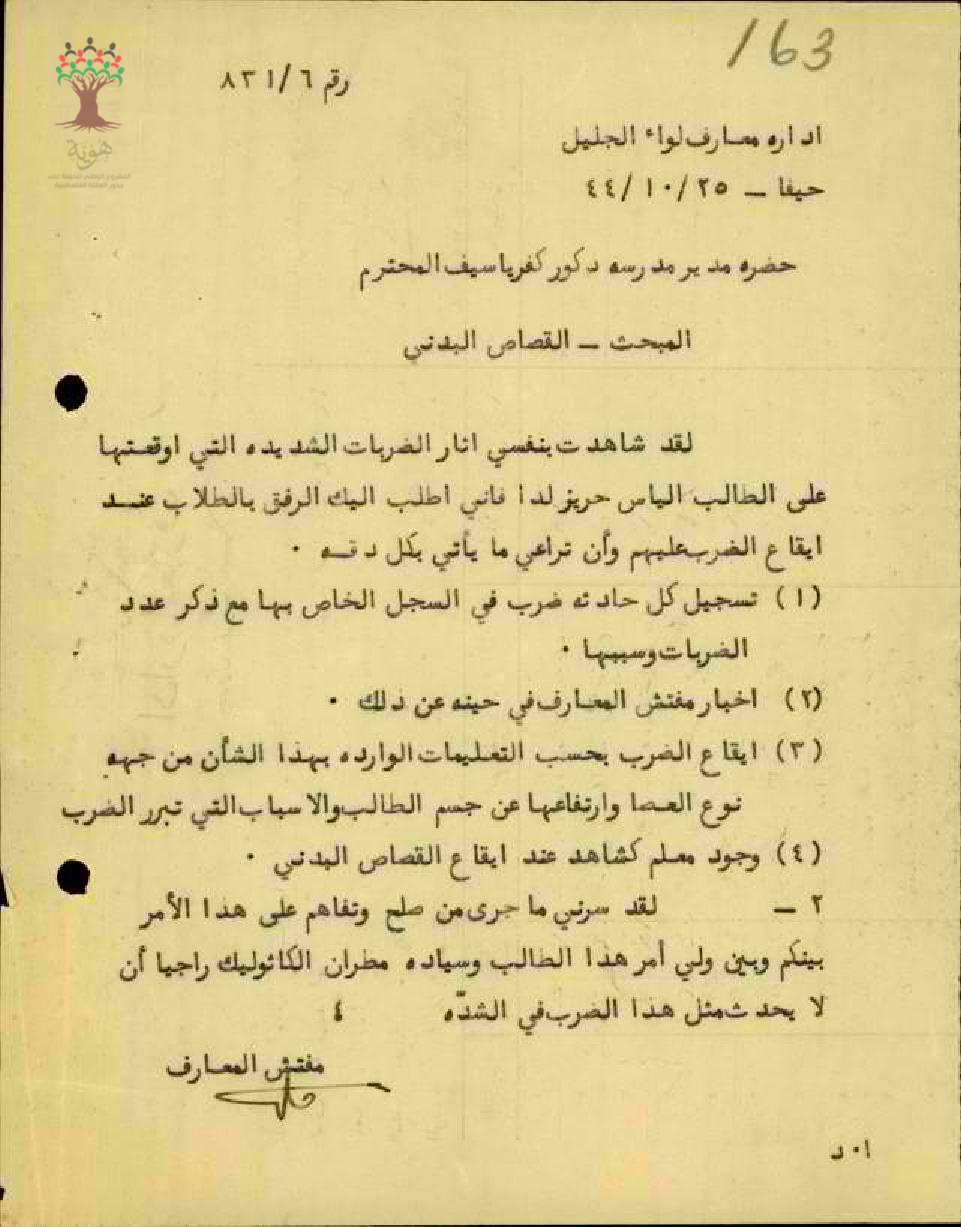 163
رقم ٨٣١/٦
اداره معارف لواء الجليل
حيفا – ٤٤/١٠/٢٥
حضره مدير مدرسه ذكور كفرياسيف المحترم
المبحث – القصاص البدني
لقد شاهدت بنفسي اثار الضربات الشديده التي اوقعتها
على الطالب الياس حريز لذا فاني اطلب اليك الرفق بالطلاب عند
ايقاع الضرب عليهم وأن تراعي ما يأتي بكل دقه ٠
(١) تسجيل كل حادثه ضرب في السجل الخاص بها مع ذكر عدد
الضربات وسببها ٠
(٢) اخبار مفتش المعارف في حينه عن ذلك ٠
(٣) ايقاع الضرب بحسب التعليمات الوارده بهذا الشأن من جهه
نوع العصا وارتفاعها عن جسم الطالب والاسباب التي تبرر الضرب
(٤) وجود معلم كشاهد عند ايقاع القصاص البدني ٠
٢ – لقد سرني ما جرى من صلح وتفاهم على هذا الأمر
بينكم وبين ولي أمر هذا الطالب وسياده مطران الكاثوليك راجيا أن
لا يحدث مثل هذا الضرب في الشدّه ٤
مفتش المعارف
١٠د
هوية